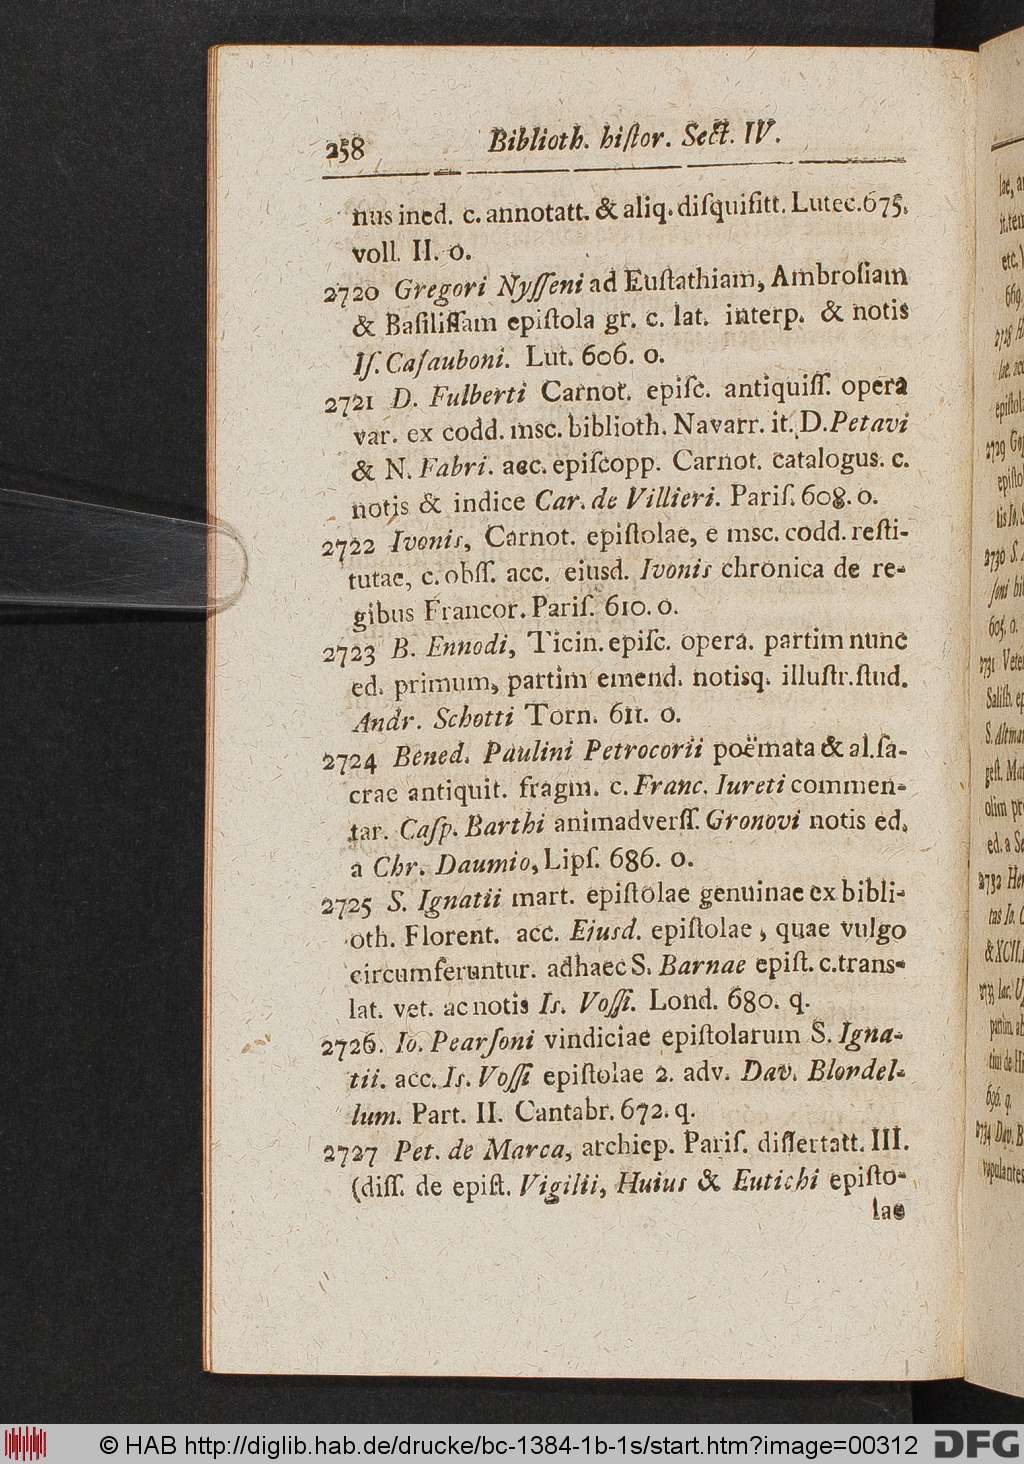 258 Biblioth. hiſtor. Sect. IV.
nus ined. c. annotatt. & aliq. diſquiſitt. Lutec. 675.
voll. II. o.
2720 Gregori Nyſſeni ad Euſtathiam, Ambroſiam
& Baſiliſſam epiſtola gr. c. lat. interp. & notis
Iſ. Caſauboni. Lut. 606. o.
2721 D. Fulberti Carnot. epiſc. antiquiſſ. opera
var. ex codd. msc. biblioth. Navarr. it. D. Petavi
& N. Fabri. acc. epiſcopp. Carnot. catalogus. c.
notis & indice Car. de Villieri. Pariſ. 608. o.
2722 Ivonis, Carnot. epiſtolae, e msc. codd. reſti-
tutae, c. obſſ. acc. eiusd. Ivonis chronica de re-
gibus Francor. Pariſ. 610. o.
2723 B. Ennodi, Ticin. epiſc. opera. partim nunc
ed. primum, partim emend. notisq. illuſtr. ſtud.
Andr. Schotti Torn. 611. o.
2724 Bened. Paulini Petrocorii poëmata & al. ſa-
crae antiquit. fragm. c. Franc. Iureti commen-
tar. Caſp. Barthi animadverſſ. Gronovi notis ed.
a Chr. Daumio, Lipſ. 686. o.
2725 S. Ignatii mart. epiſtolae genuinae ex bibli-
oth. Florent. acc. Eiusd. epiſtolae, quae vulgo
circumferuntur. adhaec S. Barnae epiſt. c. trans-
lat. vet. ac notis Is. Voſſi. Lond. 680. q.
2726. Io. Pearſoni vindiciae epiſtolarum S. Igna-
tii. acc. Is. Voſſi epiſtolae 2. adv. Dav. Blondel-
lum. Part. II. Cantabr. 672. q.
2727 Pet. de Marca, archiep. Pariſ. diſſertatt. III.
(diſſ. de epiſt. Vigilii, Huius & Eutichi epiſto-
lae
© HAB http://diglib.hab.de/drucke/bc-1384-1b-1s/start.htm?image=00312 DFG